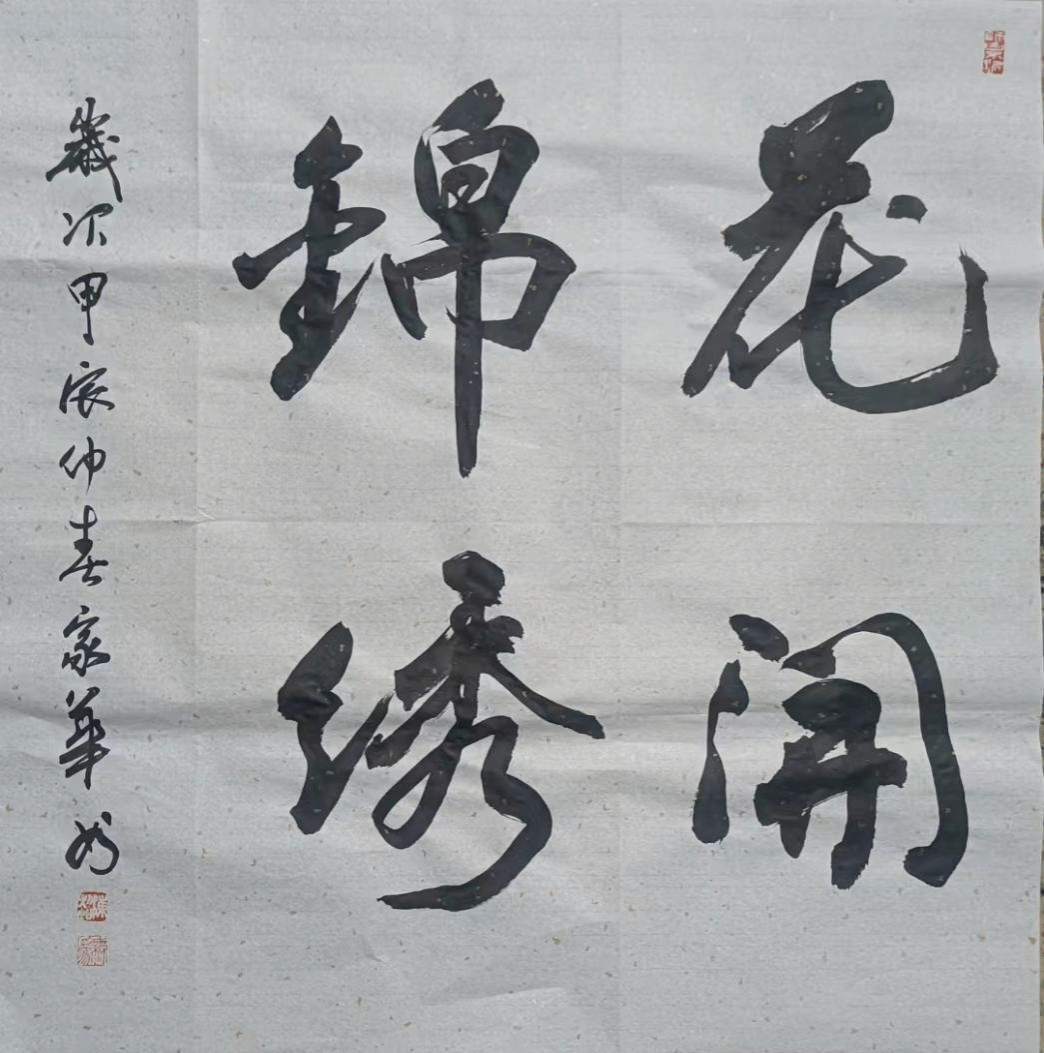 花開
錦綉
歲次甲辰仲春家華書